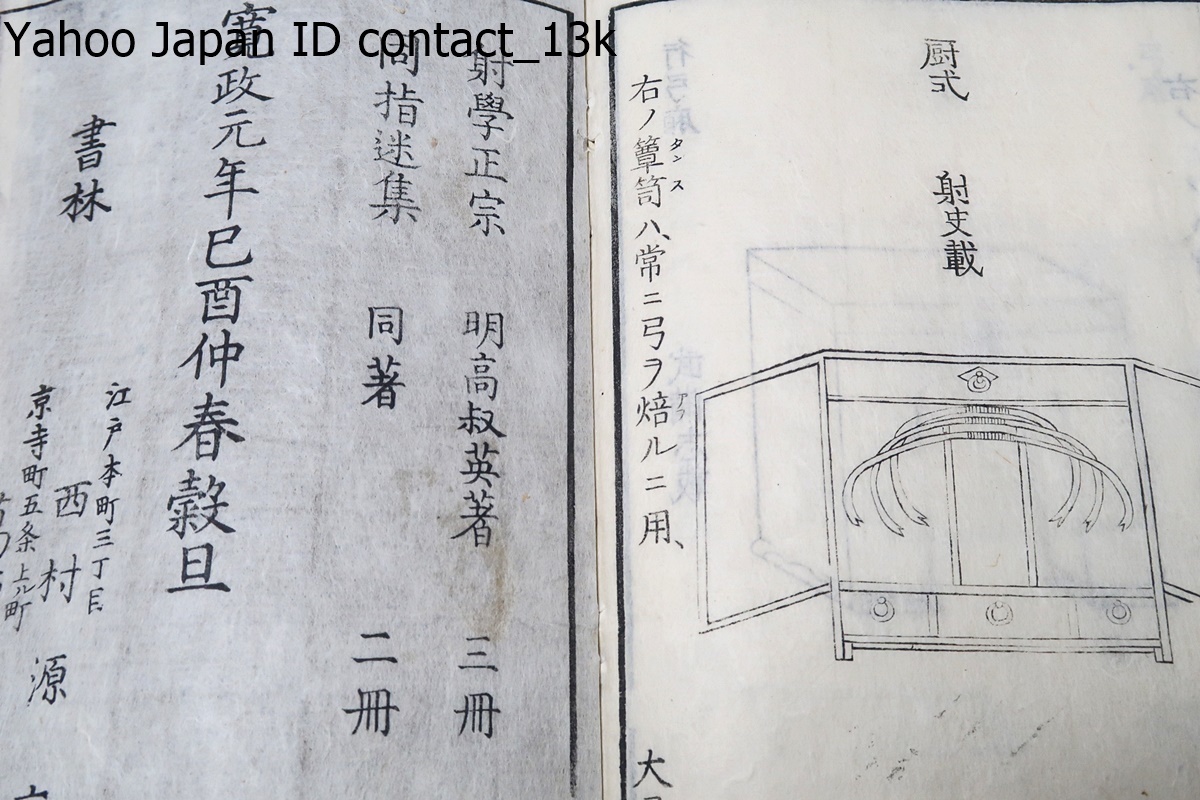 Yahoo Japan ID contact_13k
厨式　射史載
右ノ簞笥ハ、常ニ弓ヲ焙ルニ用、
タンス
アブ
大
射學正宗　明高叔英著　三冊
同指迷集　同著　二冊
寛政元年己酉仲春穀旦
書林
江戸本町三丁目
西村源
京寺町五条上ル町